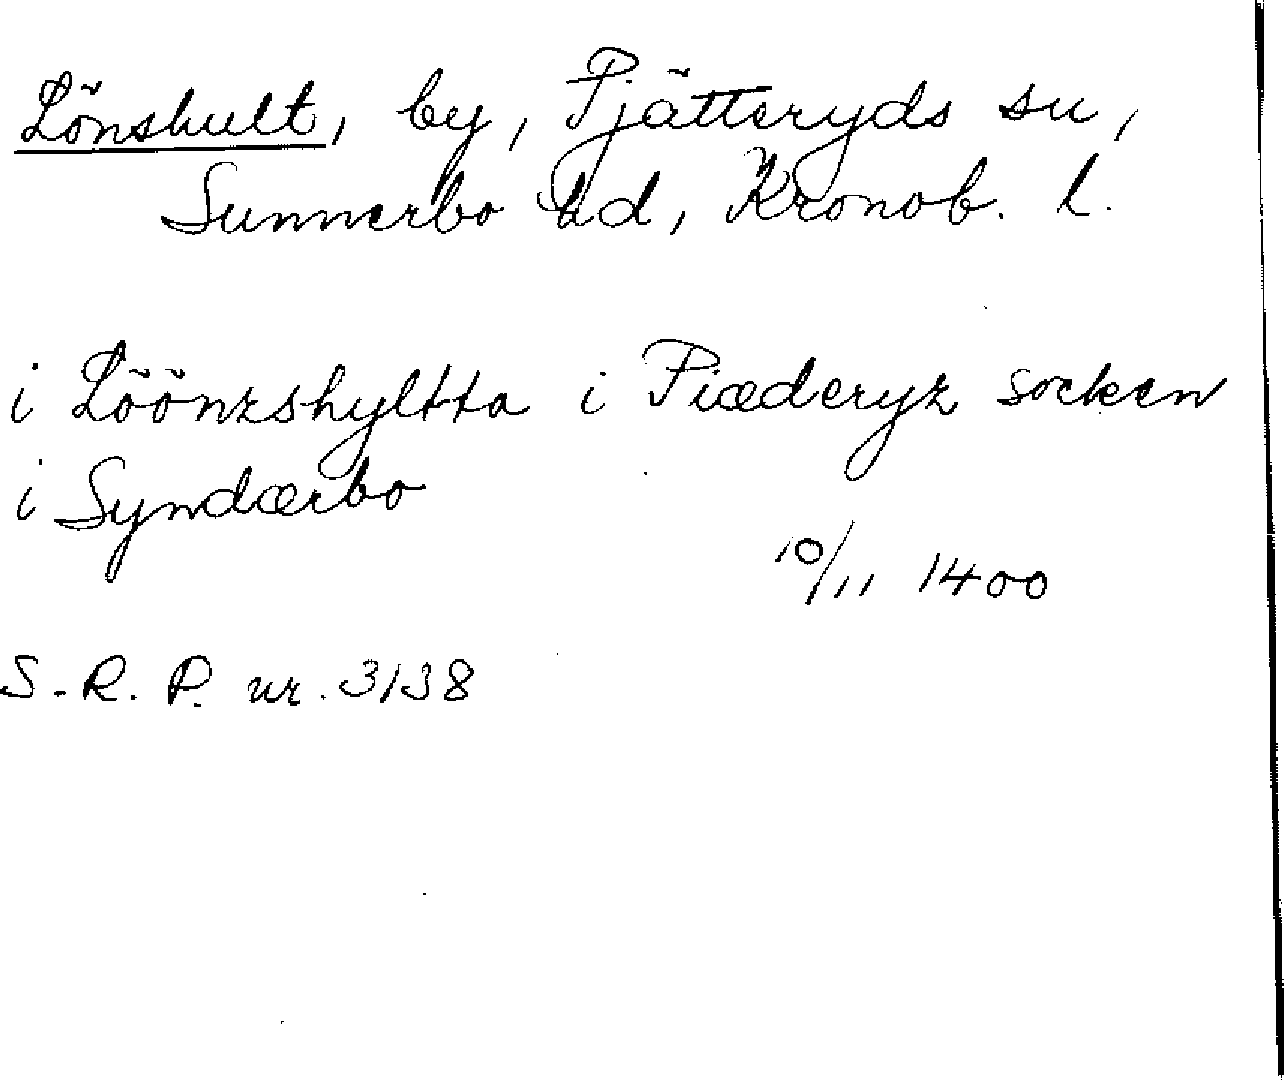 Lönshult, by, Pjätteryds sn,
Sunnerbo hd, Kronob. l.
i Löönzshyltta i Piæderyz socken
i Syndærbo
10/11 1400
S.R.P. nr. 3138